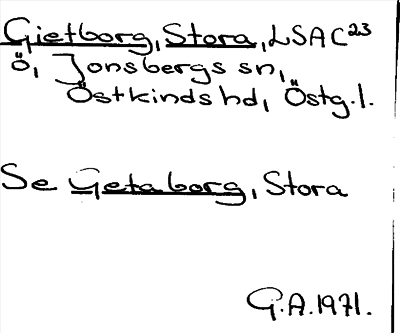 Gietborg, Stora, LSA C²³
Ö, Jonsbergs sn,
Östkinds hd, Östg.l.
Se Getaborg, Stora
G.A. 1971.